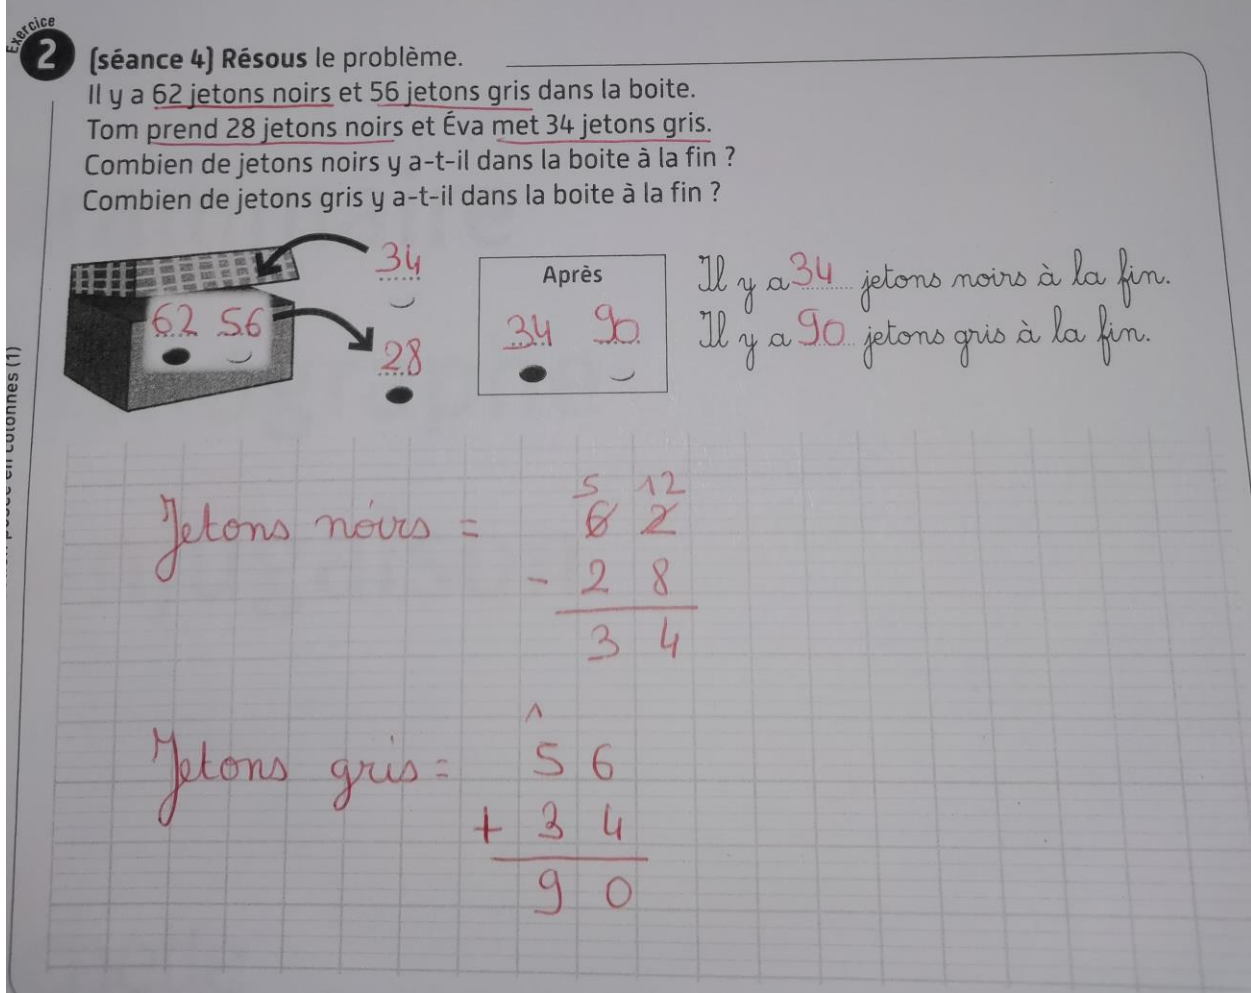 Exercice
2 (séance 4) Résous le problème.
Il y a 62 jetons noirs et 56 jetons gris dans la boite.
Tom prend 28 jetons noirs et Éva met 34 jetons gris.
Combien de jetons noirs y a-t-il dans la boite à la fin ?
Combien de jetons gris y a-t-il dans la boite à la fin ?
34
62 56
28
Après
34 90
Il y a 34 jetons noirs à la fin.
Il y a 90 jetons gris à la fin.
en colonnes (1)
5 12
Jetons noirs = 6 2
- 2 8
3 4
1
Jetons gris = 5 6
+ 3 4
9 0